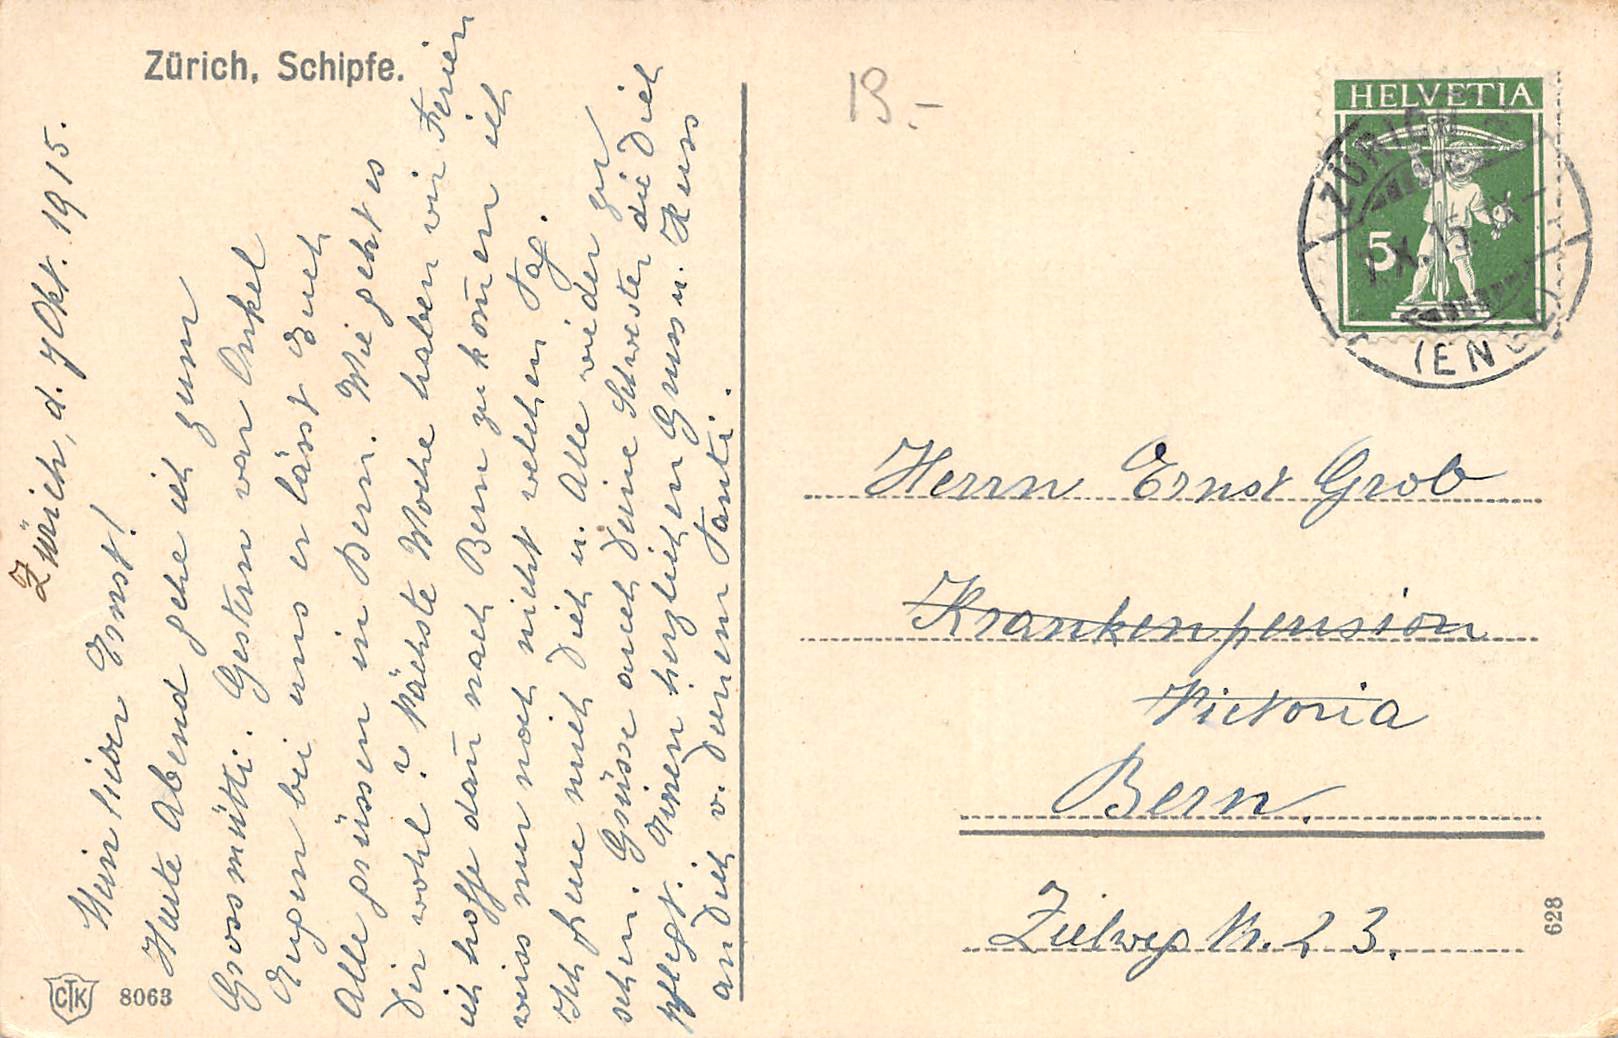 Zürich, Schipfe.
Zürich, d. 7 Okt. 1915.
Mein lieber Ernst!
Heute Abend gehe ich zum
Grossmütti. Gestern war Onkel
Eugen bei uns er lässt Euch
Alle grüssen in Bern. Wie geht es
Dir wohl? Nächste Woche haben wir Ferien
ich hoffe dan̄ nach Bern zu kom̄en ich
weiss nur noch nicht welchen Tag.
Ich freue mich Dich u. Alle wieder zu
sehen. Grüsse auch Deine Schwester die Dich
pflegt. Einen herzlichen Gruss u. Kuss
an Dich v. Deiner Tanti.
CTK
8063
13.-
HELVETIA
5
ZÜRICH
X.15.
(ENGE)
Herrn Ernst Grob
Krankenpension
Victoria
Bern.
Zielweg N. 23.
628